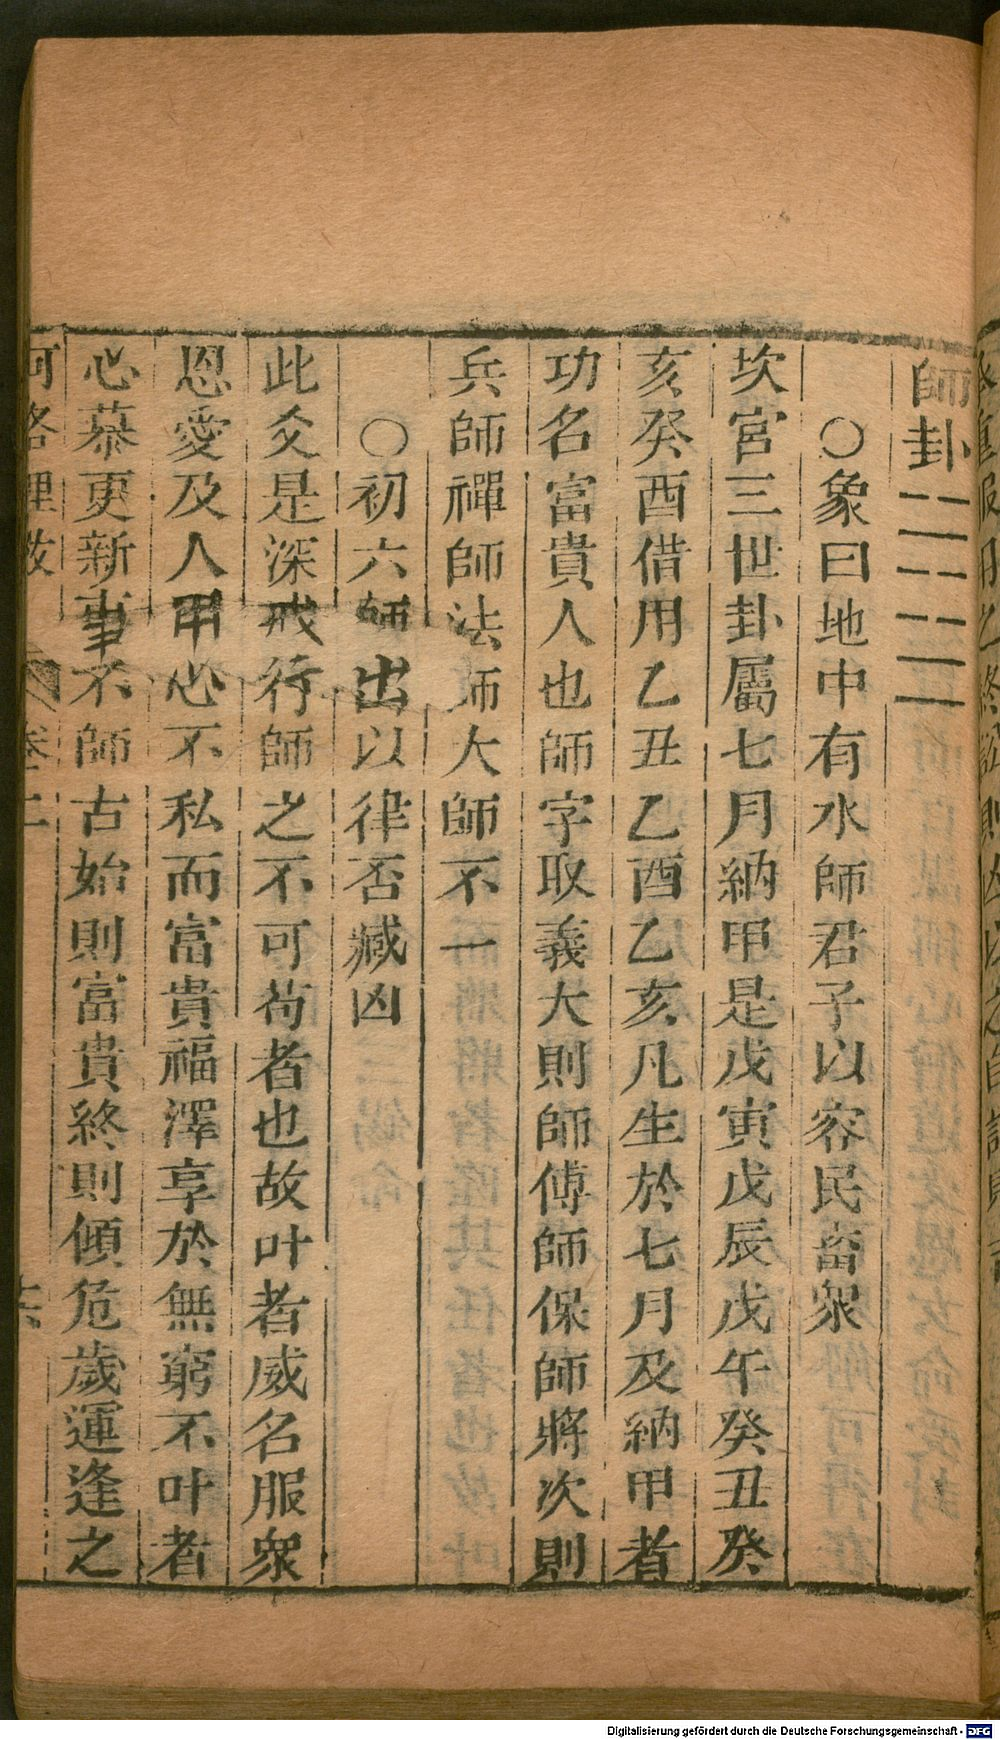 師卦
○象曰地中有水師君子以容民畜衆
坎宮三世卦屬七月納甲是戊寅戊辰戊午癸丑癸
亥癸酉借用乙丑乙酉乙亥凡生於七月及納甲者
功名富貴人也師字取義大則師傅師保師將次則
兵師禪師法師大師不一
○初六師出以律否臧凶
此爻是深戒行師之不可苟者也故叶者威名服衆
恩愛及人甲心不私而富貴福澤享於無窮不叶者
心慕更新事不師古始則富貴終則傾危歲運逢之
河洛理數 卷二 六
Digitalisierung gefördert durch die Deutsche Forschungsgemeinschaft - DFG